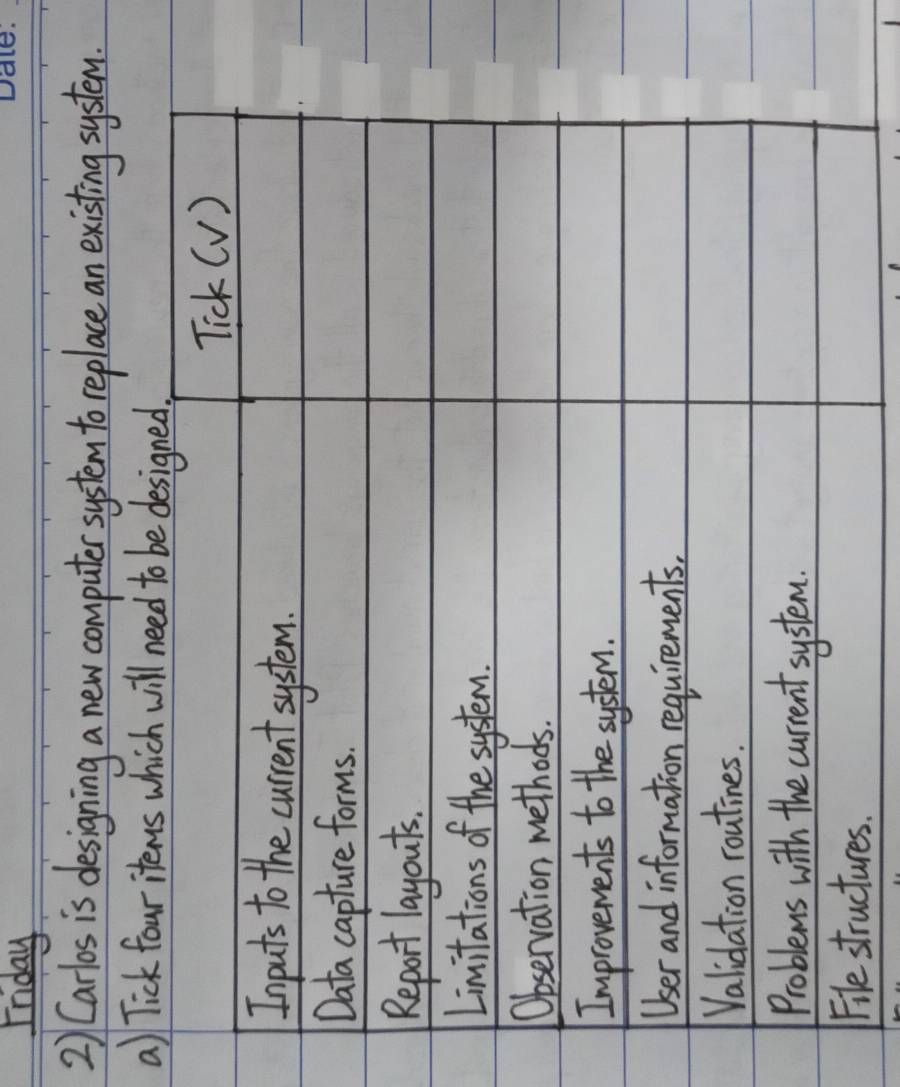 Date:
Friday
2) Carlos is designing a new computer system to replace an existing system.
a) Tick four items which will need to be designed.
Tick (√)
Inputs to the current system.
Data capture forms.
Report layouts.
Limitations of the system.
Observation methods.
Improvements to the system.
User and information requirements.
Validation routines.
Problems with the current system.
File structures.